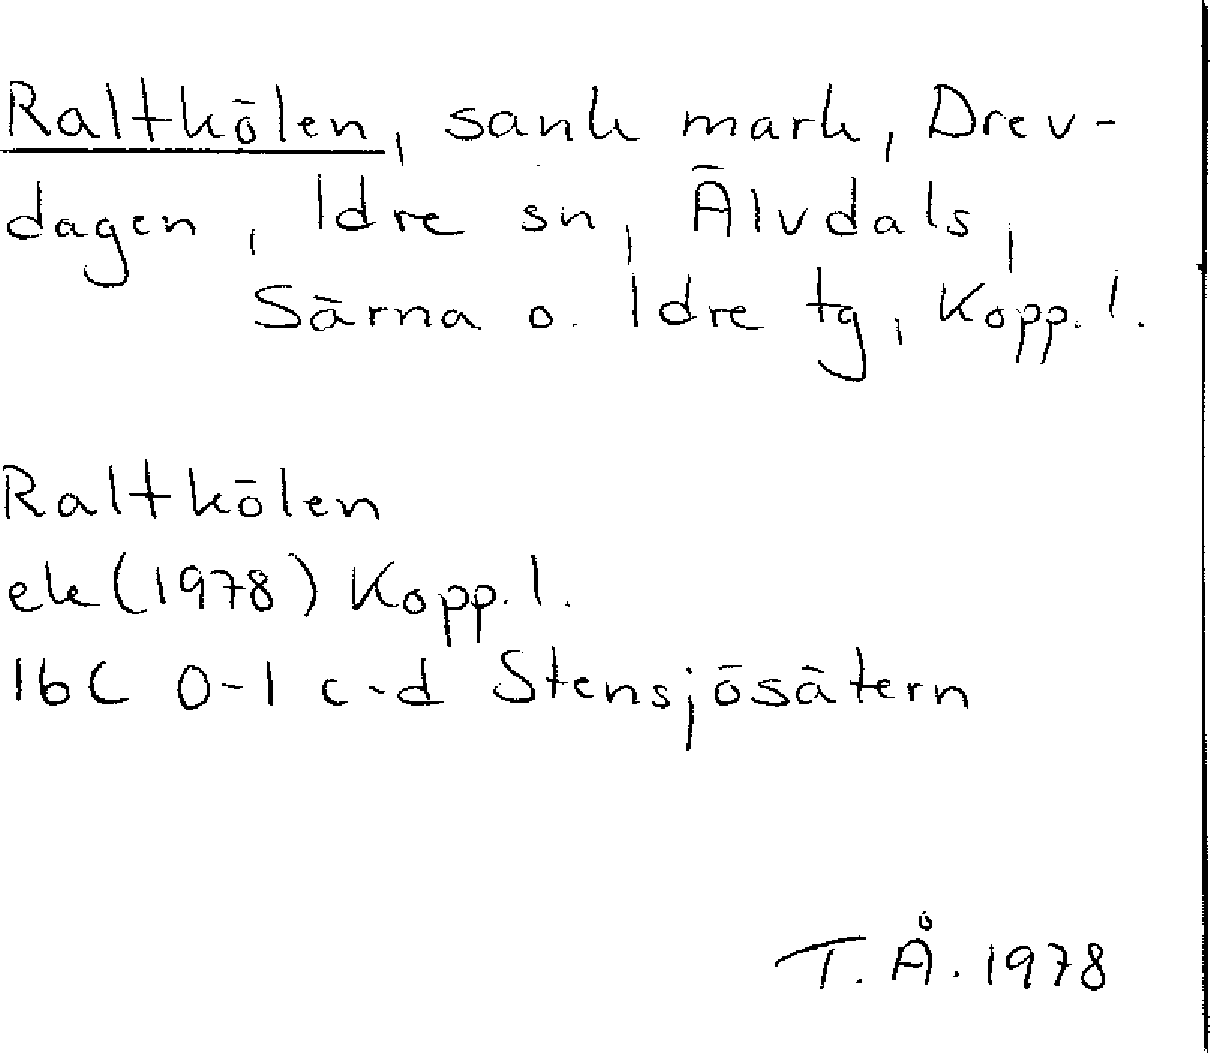 Raltkölen, sank mark, Drev-
dagen, Idre sn, Älvdals,
Särna o. Idre tg, Kopp. l.
Raltkölen
ek (1978) Kopp. l.
16C 0-1 c-d Stensjösätern
T. Å. 1978